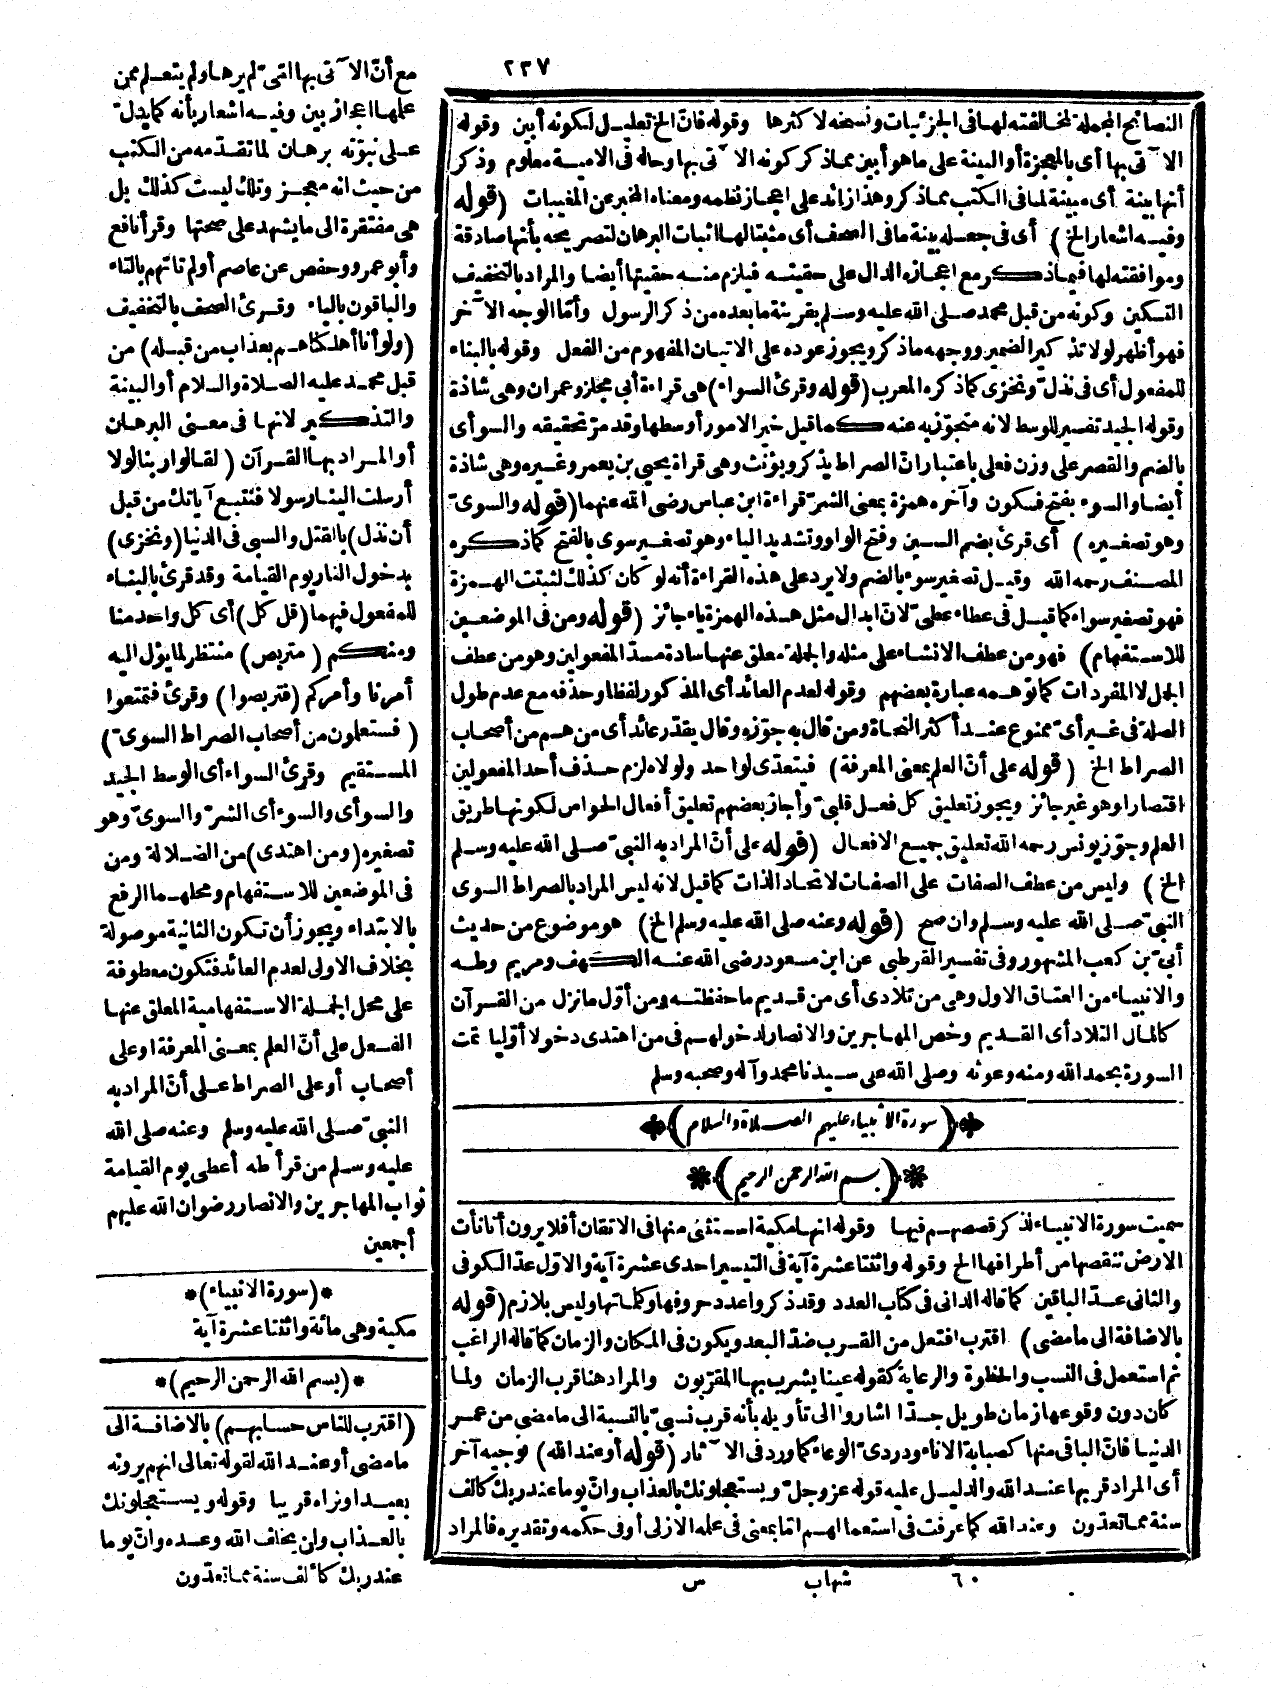 ٢٣٧
النصائح المجملة لمخالفته لها فى الجزئيات ونسخه لاكثرها وقوله فانّ الخ تعليل لكونه أبين وقوله
الآتى بها أى بالمعجزة أو البينة على ما هو أبين مما ذكر كونه الآتى بها وحاله فى الامية معلوم وذكر
أنها بينة أى مبينة لما فى الكتب مما ذكر وهذا زائد على اعجاز نظمه ومعناه المخبر عن المغيبات (قوله
وفيه اشعار الخ) أى فى جعله بينة ما فى الصحف أى مثبتا لها اثبات البرهان لتصريحه بأنها صادقة
وموافقته لها فيما ذكر مع اعجازه الدال على حقيته فيلزم منه حقيتها أيضا والمراد بالتخفيف
التسكين وكونه من قبل محمد صلى الله عليه وسلم بقرينة ما بعده من ذكر الرسول وأمّا الوجه الآخر
فهو أظهر لولا تذكير الضمير ووجهه ما ذكر ويجوز عوده على الاتيان المفهوم من الفعل وقوله بالبناء
للمفعول أى فى نذلّ ونخزى كما ذكره المعرب (قوله وقرئ السواء) هى قراءة أبى مجلز وعمران وهى شاذة
وقوله الجيد تفسير للوسط لانه متجوّز به عنه كما قيل خير الامور أوسطها وقد مرّ تحقيقه والسوأى
بالضم والقصر على وزن فعلى باعتبار انّ الصراط يذكر ويؤنث وهى قراءة يحيى بن يعمر وغيره وهى شاذة
أيضا والسوء بفتح فسكون وآخره همزة بمعنى الشرّ قراءة ابن عباس رضى الله عنهما (قوله والسوىّ
وهو تصغيره) أى قرئ بضم السين وفتح الواو وتشديد الياء وهو تصغير سوى بالفتح كما ذكره
المصنف رحمه الله وقيل تصغير سوء بالضم ولا يرد على هذه القراءة أنه لو كان كذلك لثبتت الهمزة
فهو تصغير سواء كما قيل فى عطاء عطىّ لانّ ابدال مثل هذه الهمزة ياء جائز (قوله ومن فى الموضعين
للاستفهام) فهو من عطف الانشاء على مثله والجملة معلق عنها سادة مسدّ المفعولين وهو من عطف
الجمل لا المفردات كما توهمه عبارة بعضهم وقوله لعدم العائد أى المذكور لفظا وحذفه مع عدم طول
الصلة فى غير أىّ ممنوع عند أكثر النحاة ومن قال به جوّزه وقال يقدّر عائد أى من هم من أصحاب
الصراط الخ (قوله على أنّ العلم بمعنى المعرفة) فيتعدّى لواحد ولولاه لزم حذف أحد المفعولين
اقتصارا وهو غير جائز ويجوز تعليق كل فعل قلبىّ وأجاز بعضهم تعليق أفعال الحواس لكونها طريق
العلم وجوّز يونس رحمه الله تعليق جميع الافعال (قوله على أنّ المراد به النبىّ صلى الله عليه وسلم
الخ) وليس من عطف الصفات على الصفات لاتحاد الذات كما قيل لانه ليس المراد بالصراط السوى
النبىّ صلى الله عليه وسلم وان صح (قوله وعنه صلى الله عليه وسلم الخ) هو موضوع من حديث
أبىّ بن كعب المشهور وفى تفسير القرطبى عن ابن مسعود رضى الله عنه الكهف ومريم وطه
والانبياء من العتاق الاول وهى من تلادى أى من قديم ما حفظته ومن أوّل ما نزل من القرآن
كالمال التلاد أى القديم وخص المهاجرين والانصار لدخولهم فى من اهتدى دخولا أوّليا تمت
السورة بحمد الله ومنه وعونه وصلى الله على سيدنا محمد وآله وصحبه وسلم
(سورة الأنبياء عليهم الصلاة والسلام)
(بسم الله الرحمن الرحيم)
سميت سورة الانبياء لذكر قصصهم فيها وقوله انها مكية استثنى منها فى الاتقان أفلا يرون أنا نأت
الارض ننقصها من أطرافها الخ وقوله واثنتا عشرة آية فى التيسير احدى عشرة آية والاوّل عدّ الكوفى
والثانى عدّ الباقين كما قاله الدانى فى كتاب العدد وقد ذكروا عدد حروفها وكلماتها وليس بلازم (قوله
بالاضافة الى ما مضى) اقترب افتعل من القرب ضدّ البعد ويكون فى المكان والزمان كما قاله الراغب
ثم استعمل فى النسب والحظوة والرعاية كقوله عينا يشرب بها المقرّبون والمراد هنا قرب الزمان ولما
كان دون وقوعها زمان طويل جدّا اشاروا الى تأويله بأنه قرب نسبىّ بالنسبة الى ما مضى من عمر
الدنيا فانّ الباقى منها كصبابة الاناء ودردىّ الوعاء كما ورد فى الآثار (قوله أو عند الله) توجيه آخر
أى المراد قربها عند الله والدليل عليه قوله عز وجلّ ويستعجلونك بالعذاب وانّ يوما عند ربك كألف
سنة مما تعدّون وعند الله كما عرفت فى استعمالهم امّا بمعنى فى علمه الازلى أو فى حكمه وتقديره فالمراد
٦٠ شهاب س
مع أنّ الآتى بها امّىّ لم يرها ولم يتعلم ممن
علمها اعجاز بين وفيه اشعار بأنه كما يدلّ
على نبوّته برهان لما تقدّمه من الكتب
من حيث انه معجز وتلك ليست كذلك بل
هى مفتقرة الى ما يشهد على صحتها وقرأ نافع
وأبو عمرو وحفص عن عاصم أولم تاتهم بالتاء
والباقون بالياء وقرئ الصحف بالتخفيف
(ولو أنا أهلكناهم بعذاب من قبله) من
قبل محمد عليه الصلاة والسلام أو البينة
والتذكير لانها فى معنى البرهان
أو المراد بها القرآن (لقالوا ربنا لولا
أرسلت الينا رسولا فنتبع آياتك من قبل
أن نذل) بالقتل والسبى فى الدنيا (ونخزى)
بدخول النار يوم القيامة وقد قرئ بالبناء
للمفعول فيهما (قل كل) أى كل واحد منا
ومنكم (متربص) منتظر لما يؤل اليه
أمرنا وأمركم (فتربصوا) وقرئ فتمتعوا
(فستعلمون من أصحاب الصراط السوىّ)
المستقيم وقرئ السواء أى الوسط الجيد
والسوأى والسوء أى الشرّ والسوىّ وهو
تصغيره (ومن اهتدى) من الضلالة ومن
فى الموضعين للاستفهام ومحلهما الرفع
بالابتداء ويجوز أن تكون الثانية موصولة
بخلاف الاولى لعدم العائد فتكون معطوفة
على محل الجملة الاستفهامية المعلق عنها
الفعل على أنّ العلم بمعنى المعرفة او على
أصحاب أو على الصراط على أنّ المراد به
النبىّ صلى الله عليه وسلم وعنه صلى الله
عليه وسلم من قرأ طه أعطى يوم القيامة
ثواب المهاجرين والانصار رضوان الله عليهم
أجمعين
*(سورة الانبياء)*
مكية وهى مائة واثنتا عشرة آية
*(بسم الله الرحمن الرحيم)*
(اقترب للناس حسابهم) بالاضافة الى
ما مضى أو عند الله لقوله تعالى انهم يرونه
بعيدا ونراه قريبا وقوله ويستعجلونك
بالعذاب ولن يخلف الله وعده وانّ يوما
عند ربك كألف سنة مما تعدّون